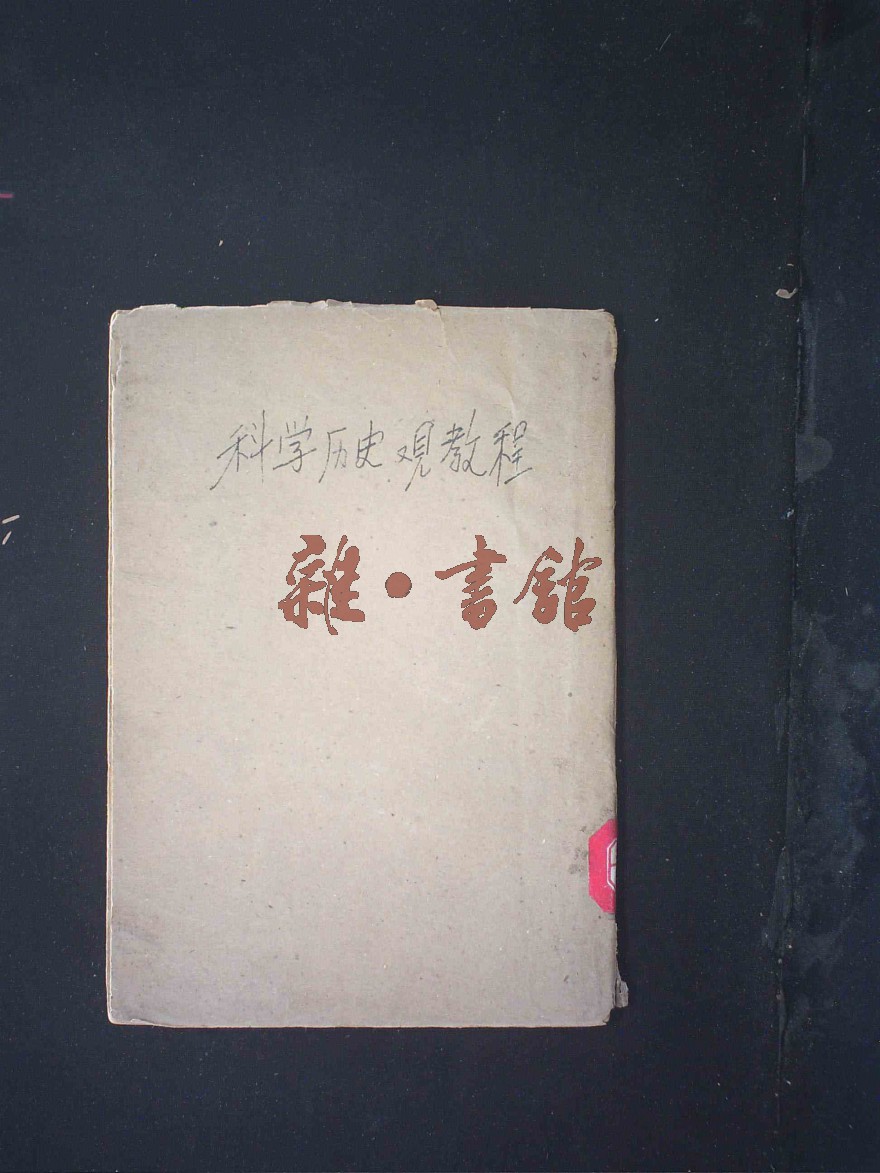 科学历史观教程
雜·書館